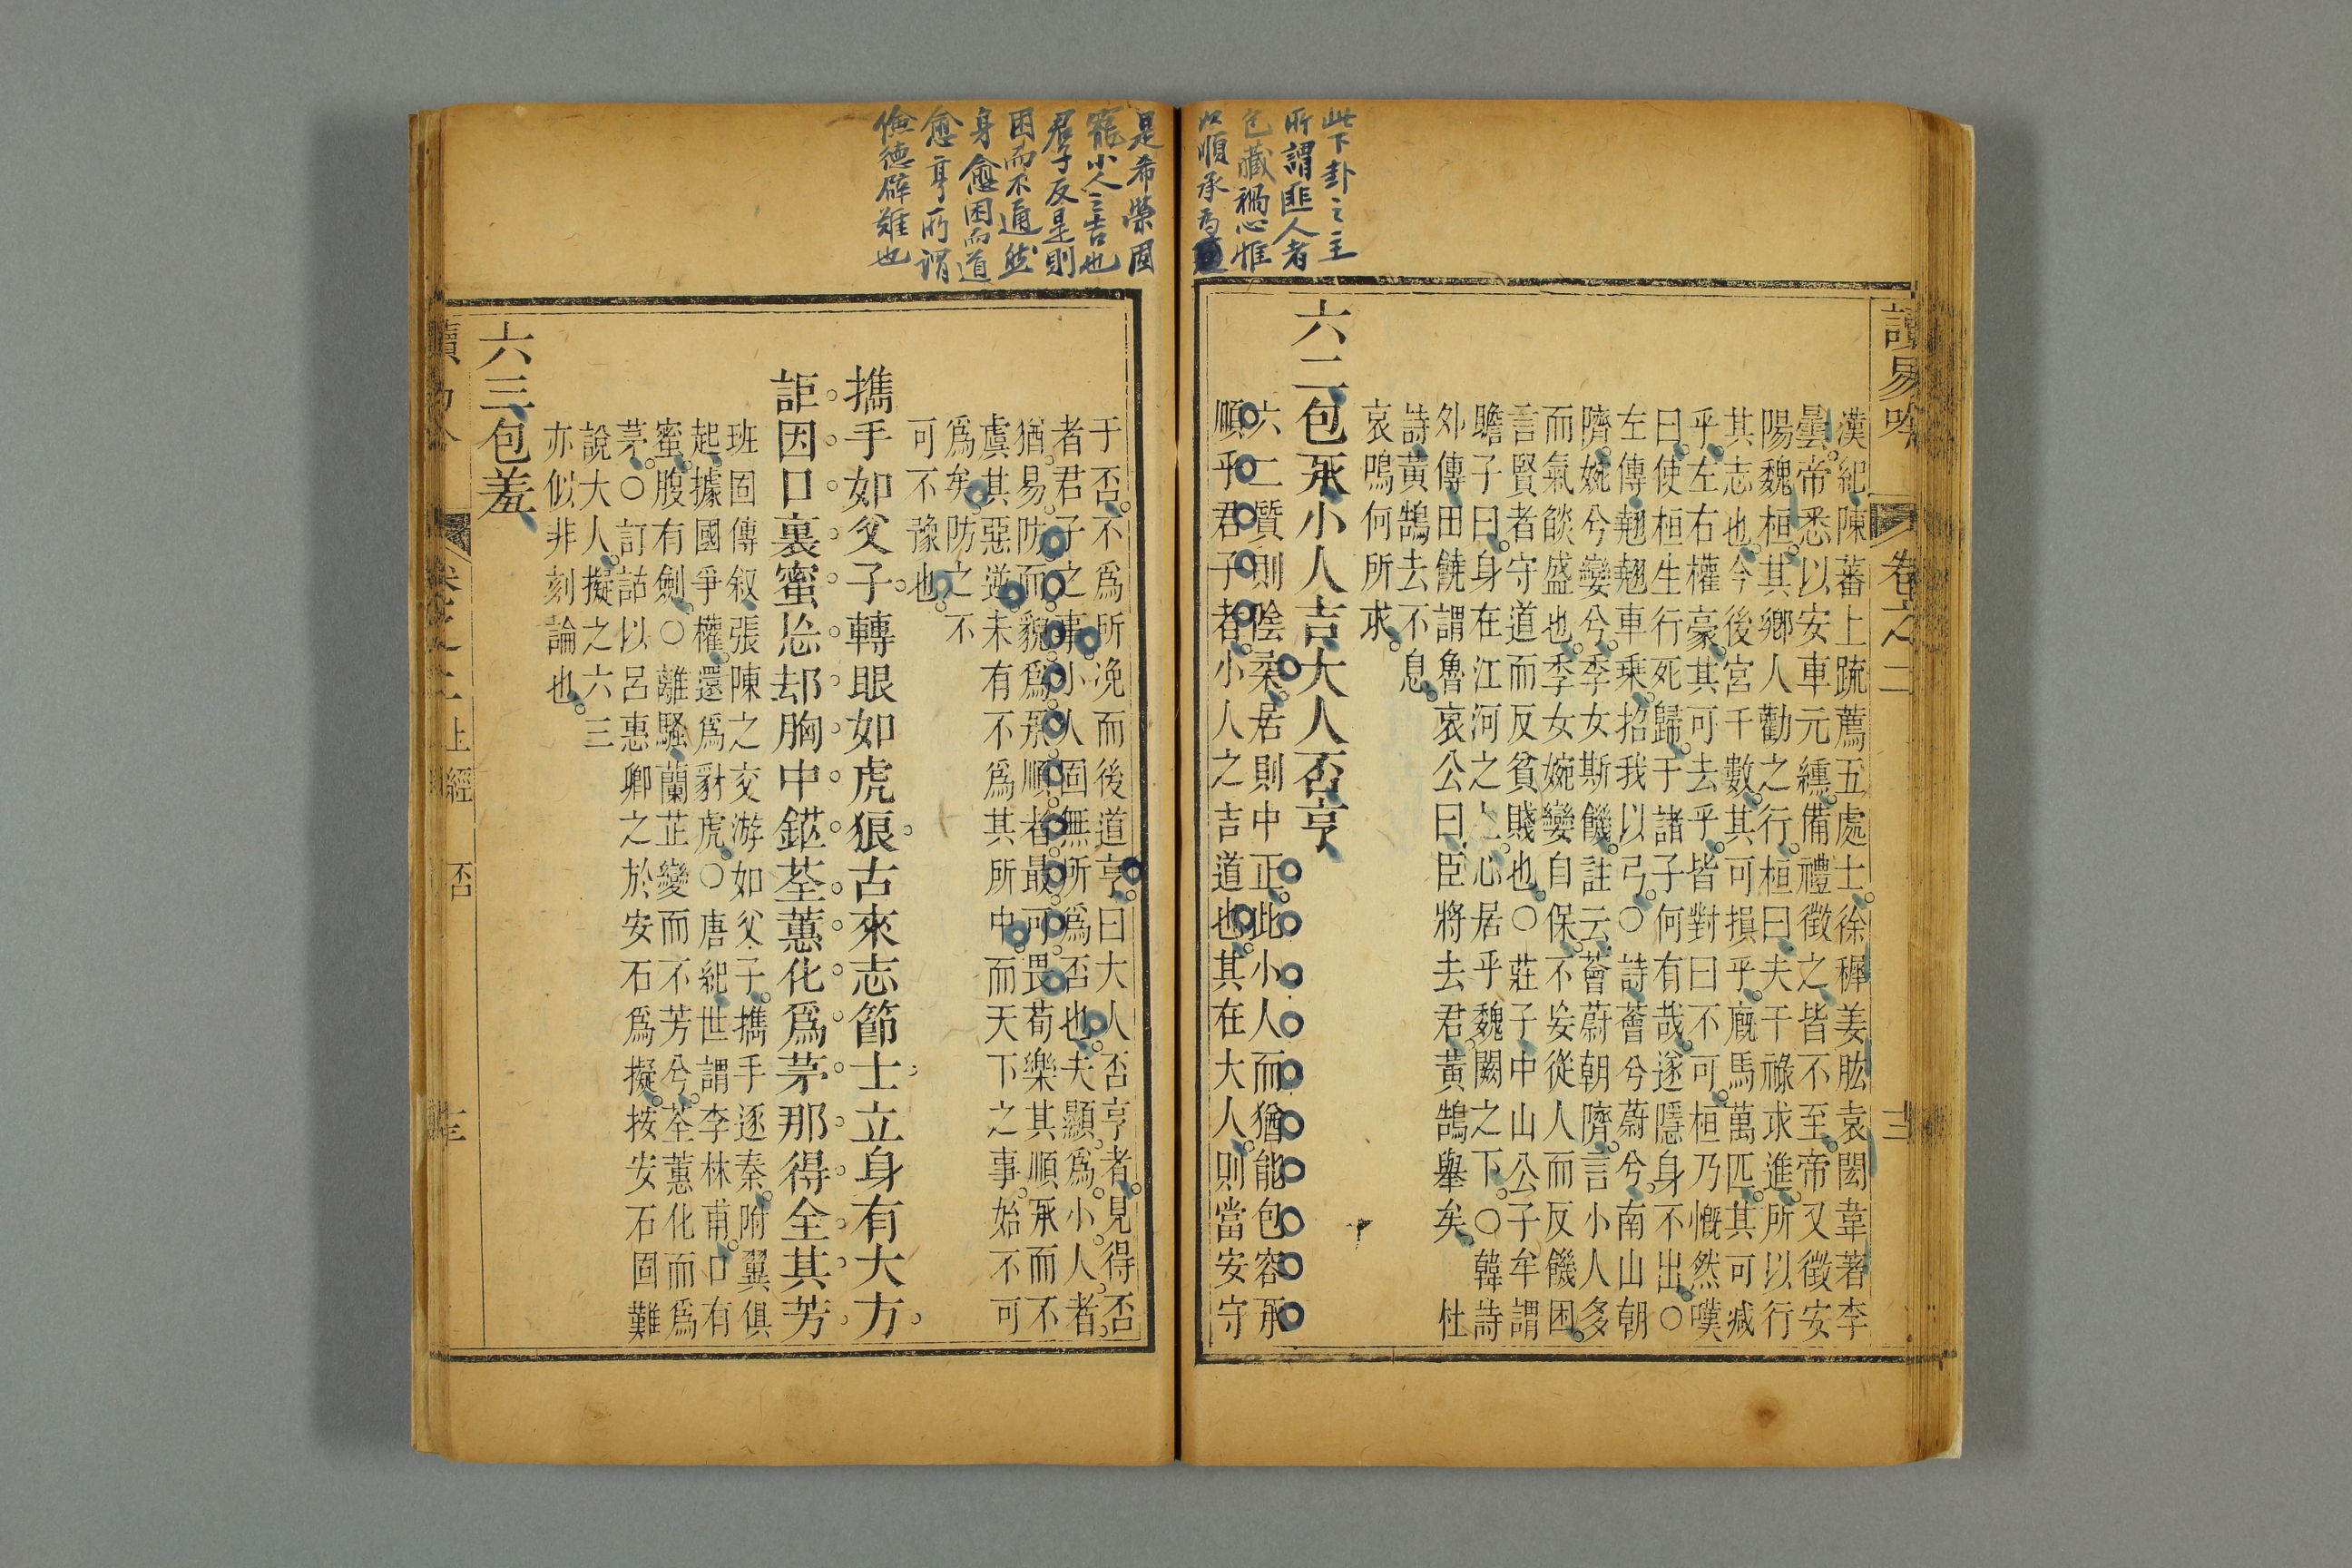 讀易吟 卷之二 十二
漢紀陳蕃上疏薦五處士徐穉姜肱袁閎韋著李
曇帝悉以安車元纁備禮徵之皆不至帝又徵安
陽魏桓其鄉人勸之行桓曰夫干祿求進所以行
其志也今後宮千數其可損乎廐馬萬匹其可減
乎左右權豪其可去乎皆對曰不可桓乃慨然嘆
曰使桓生行死歸于諸子何有哉遂隱身不出○
左傳翹翹車乘招我以弓○詩薈兮蔚兮南山朝
隮婉兮孌兮季女斯饑註云薈蔚朝隮言小人多
而氣燄盛也季女婉孌自保不妄從人而反饑困
言賢者守道而反貧賤也○莊子中山公子牟謂
瞻子曰身在江河之上心居乎魏闕之下○韓詩
外傳田饒謂魯哀公曰臣將去君黃鵠舉矣 杜
詩黃鵠去不息
哀鳴何所求
六二包承小人吉大人否亨
六二質則陰柔居則中正此小人而猶能包容承
順乎君子者小人之吉道也其在大人則當安守
此下卦之主
所謂匪人者
包藏禍心惟
以順承為
是希榮固
寵小人之吉也
君子反是則
困而不通然
身愈困而道
愈亨所謂
儉德辟難也
于否不爲所浼而後道亨曰大人否亨者見得否
者君子之事小人固無所爲否也夫顯爲小人者
猶易防而貌爲承順者最可畏苟樂其順承而不
虞其惡逆未有不爲其所中而天下之事始不可
爲矣防之不
可不豫也
攜手如父子轉眼如虎狼古來志節士立身有大方
詎因口裏蜜忘却胸中鋩荃蕙化爲茅那得全其芳
班固傳叙張陳之交游如父子攜手逐秦附翼俱
起據國爭權還爲豺虎○唐紀世謂李林甫口有
蜜腹有劍○離騷蘭芷變而不芳兮荃蕙化而爲
茅○訂詁以呂惠卿之於安石爲擬按安石固難
說大人擬之六三
亦似非刻論也
六三包羞
上經 否